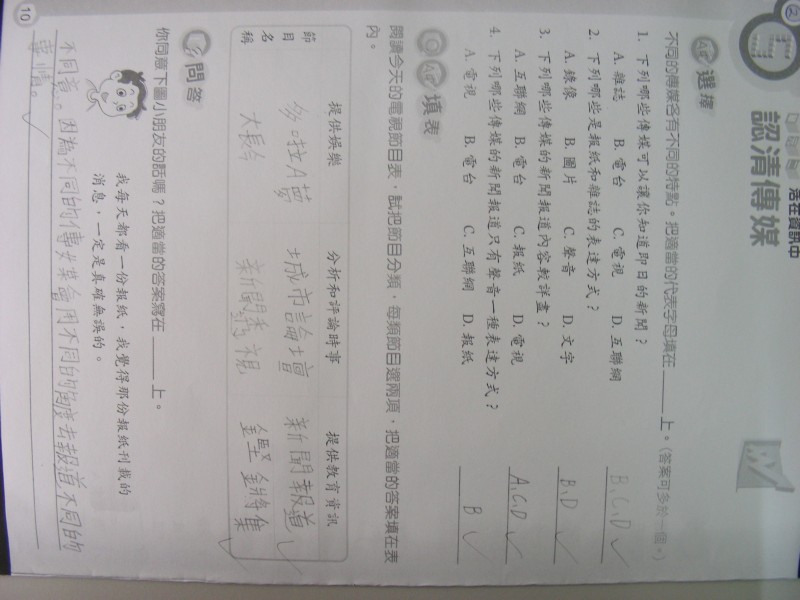 活在資訊中
認清傳媒
選擇
不同的傳媒各有不同的特點。把適當的代表字母填在______上。(答案可多於一個。)
1. 下列哪些傳媒可以讓你知道即日的新聞？ B,C,D ✓
A. 雜誌 B. 電台 C. 電視 D. 互聯網
2. 下列哪些是報紙和雜誌的表達方式？ B,D ✓
A. 錄像 B. 圖片 C. 聲音 D. 文字
3. 下列哪些傳媒的新聞報道內容較詳盡？ A,C,D ✓
A. 互聯網 B. 電台 C. 報紙 D. 電視
4. 下列哪些傳媒的新聞報道只有聲音一種表達方式？ B ✓
A. 電視 B. 電台 C. 互聯網 D. 報紙
填表
閱讀今天的電視節目表，試把節目分類，每類節目選兩項，把適當的答案填在表
內。
提供娛樂 分析和評論時事 提供教育資訊
節目名稱
多啦A夢 城市論壇 新聞報道 ✓
大長今 新聞透視 鏗鏘集 ✓
問答
你同意下圖小朋友的話嗎？把適當的答案寫在______上。
我每天都看一份報紙，我覺得那份報紙刊載的
消息，一定是真確無誤的。
不同意。因為不同的傳媒會用不同的角度去報道不同的
事情。 ✓
10